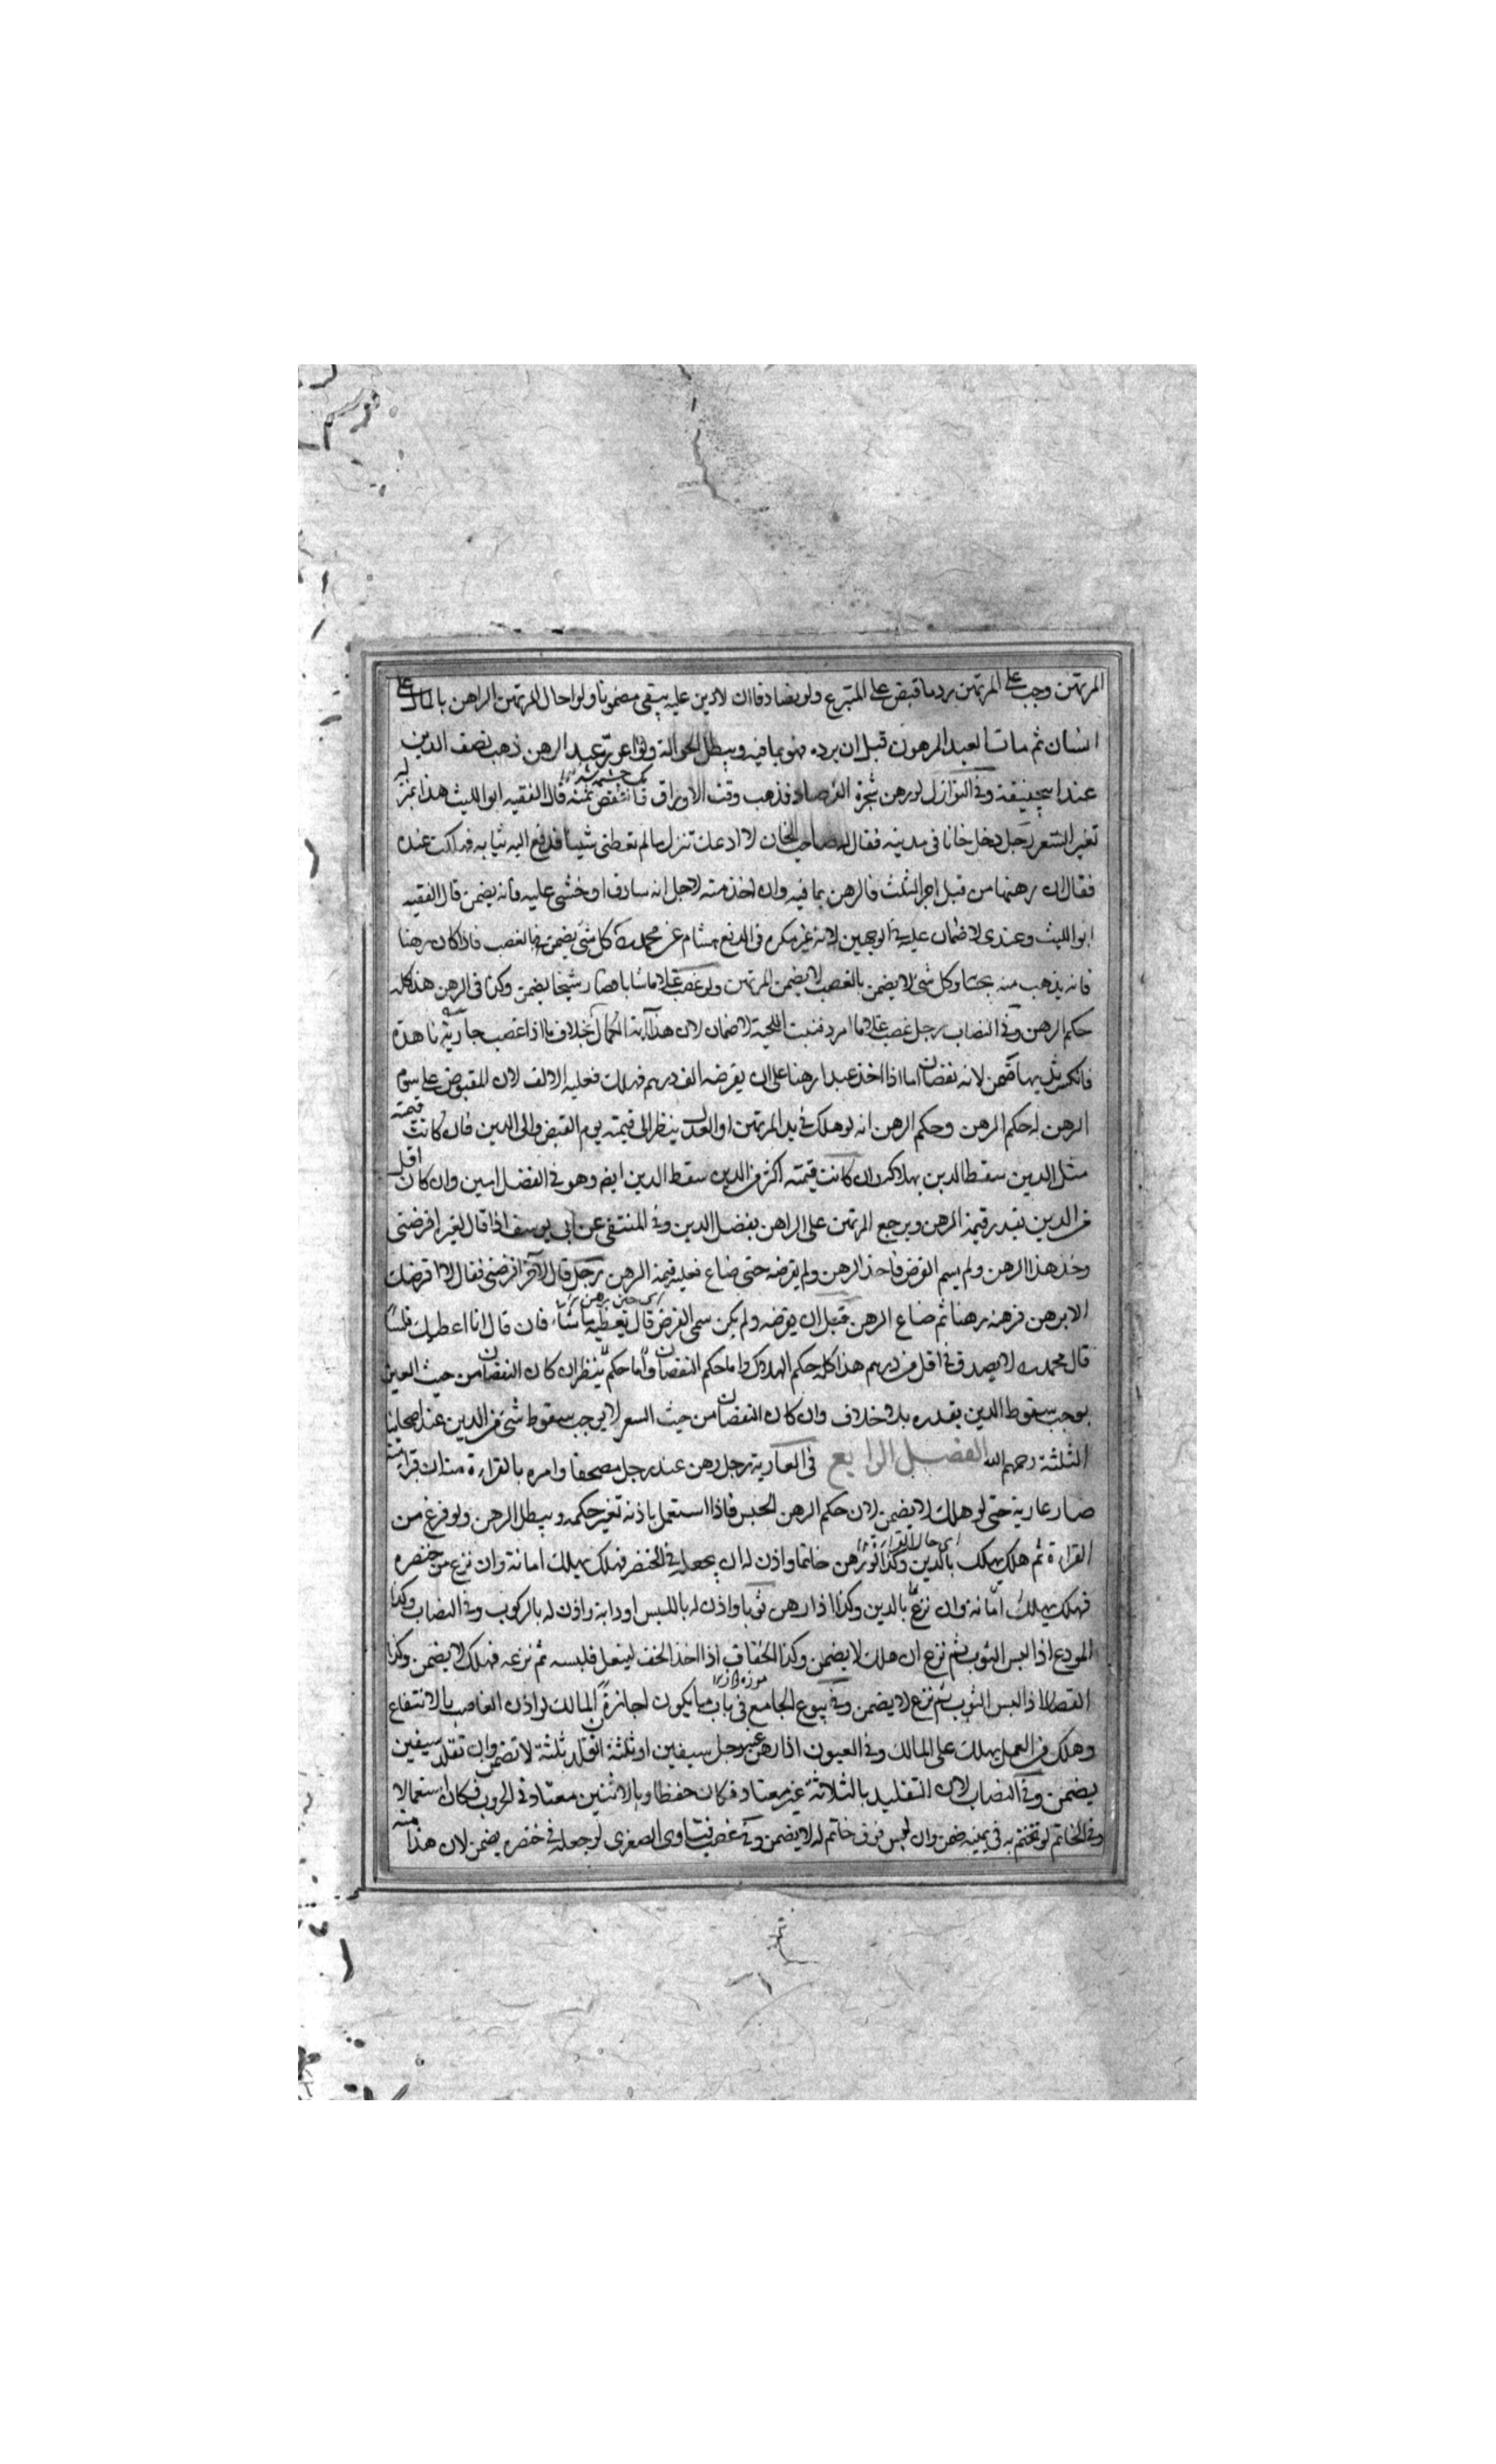 المرتهن وجب على المرتهن رد ما قبض على المتبرع ولو تصادقا ان لا دين عليه يبقى مضمونا ولو احال المرتهن الراهن بالمال على
انسان ثم مات العبد المرهون قبل ان يرده فهو بما فيه ويبطل الحوالة ولو اعور عبد الرهن ذهب نصف الدين
عند ابيحنيفة وفى النوازل لو رهن شجرة الفرصاد فذهب وقت الاوراق فانتقص ثمنه قال الفقيه ابو الليث هذا بمنزلة
تغير السعر رجل دخل خانا فى مدينة فقال له صاحب الخان لا ادعك تنزل ما لم تعطنى شيئا فدفع اليه ثيابه فهلكت عنده
فقال ان رهنها من قبل اجر الثلث فالرهن بما فيه وان اخذ منه لاجل انه سارق او خشى عليه فانه يضمن قال الفقيه
ابو الليث وعندى لا ضمان عليه فى الوجهين لانه غير مكره فى الدفع هشام عن محمد كل شئ يضمن فى الغصب فاذا كان رهنا
فانه يذهب منه بحسابه وكل شئ لا يضمن بالغصب لا يضمن المرتهن ولو غصب غلاما شابا فصار شيخا يضمن وكذا فى الرهن هذا كله
حكم الرهن وفى النصاب رجل غصب غلاما امرد فنبت اللحية لا ضمان لان هذا آية الكمال بخلاف ما اذا غصب جارية ناهدة
فانكسر ثديها ضمن لانه نقصان اما اذا اخذ عبدا رهنا على ان يقرضه الف درهم فهلك فعليه الالف لان المقبوض على سوم
الرهن له حكم الرهن وحكم الرهن انه لو هلك فى يد المرتهن او العدل ينظر الى قيمته يوم القبض والى الدين فان كانت قيمته
مثل الدين سقط الدين بهلاكه وان كانت قيمته اكثر من الدين سقط الدين ايضا وهو فى الفضل امين وان كان اقل
من الدين بقدر قيمة الرهن ويرجع المرتهن على الراهن بفضل الدين وفى المنتقى عن ابى يوسف اذا قال لغيره اقرضنى
وخذ هذا الرهن ولم يسم القرض فاخذ الرهن ولم يقرضه حتى ضاع فعليه قيمة الرهن رجل قال لآخر اقرضنى فقال لا اقرضك
الا برهن فرهنه رهنا ثم ضاع الرهن قبل ان يقرضه ولم يكن سمى القرض قال تعطيه ما شاء فان قال انا اعطيك فلسا
قال محمد لا يصدق فى اقل من درهم هذا كله حكم الهلاك واما حكم النقصان ينظر ان كان النقصان من حيث العين
يوجب سقوط الدين بقدره بلا خلاف وان كان النقصان من حيث السعر لا يوجب سقوط شئ من الدين عند اصحابنا
الثلثة رحمهم الله الفصل الرابع فى العارية رجل رهن عند رجل مصحفا وامره بالقراءة منه ان قرأ منه
صار عارية حتى لو هلك لا يضمن لان حكم الرهن الحبس فاذا استعمل باذنه تغير حكمه ويبطل الرهن ولو فرغ من
القراءة ثم هلك يهلك بالدين وكذا لو رهن خاتما واذن له ان يجعله فى الخنصر فهلك يهلك امانة وان نزع من خنصره
فهلك يهلك امانة وان نزع بالدين وكذا اذا رهن ثوبا واذن له باللبس او دابة واذن له بالركوب وفى النصاب وكذا
المودع اذا لبس الثوب ثم نزع ان هلك لا يضمن وكذا الخفاف اذا اخذ الخف لينعل فلبسه ثم نزعه فهلك لا يضمن وكذا
القصار اذا لبس الثوب ثم نزع لا يضمن وفى بيوع الجامع فى باب ما يكون اجازة المالك لو اذن الغاصب بالانتفاع
وهلك من العمل يهلك على المالك وفى العيون اذا رهن عند رجل سيفين او ثلثة فتقلد ثلثة لا تضمن وان تقلد سيفين
يضمن وفى النصاب لان التقليد بالثلاثة غير معتاد فكان حفظا وبالاثنين معتاد فى الحروب فكان استعمالا
وفى الخاتم لو تختم به فى يمينه ضمن وان لبس فوق خاتم له لا يضمن وفى غصب فتاوى الصغرى لو جعله فى خنصره يضمن لان هذا منه